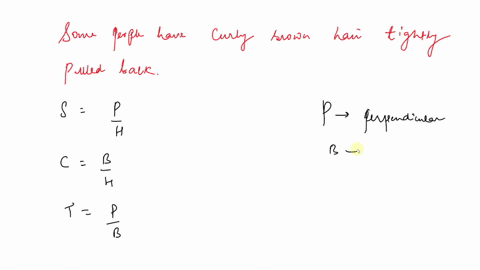 Some people have Curly brown hair tightly
Pulled back.
S = P/H
P → perpendicular
B —
C = B/H
T = P/B